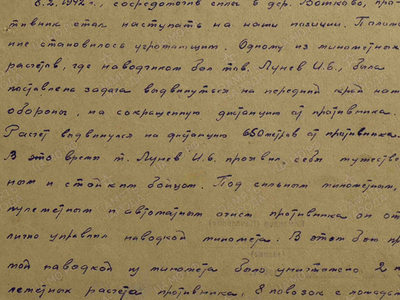 8.2.1942 г., сосредоточив силы в дер. Вотково, про-
тивник стал наступать на наши позиции. Положе
ние становилось угрожающим. Одному из минометных
расчетов, где наводчиком был тов. Лунев И.Б., была
поставлена задача выдвинуться на передний край наш
обороны, на сокращенную дистанцию от противника.
Расчет выдвинулся на дистанцию 650 метров от противника.
В это время т. Лунев И.Б. проявил себя мужествен
ным и стойким бойцом. Под сильным минометным,
пулеметным и автоматным огнем противника он от
лично управлял наводкой миномета. В этом бою пр
мой наводкой из миномета было уничтожено 2 пу
леметных расчета противника, 8 повозок с лошадьм